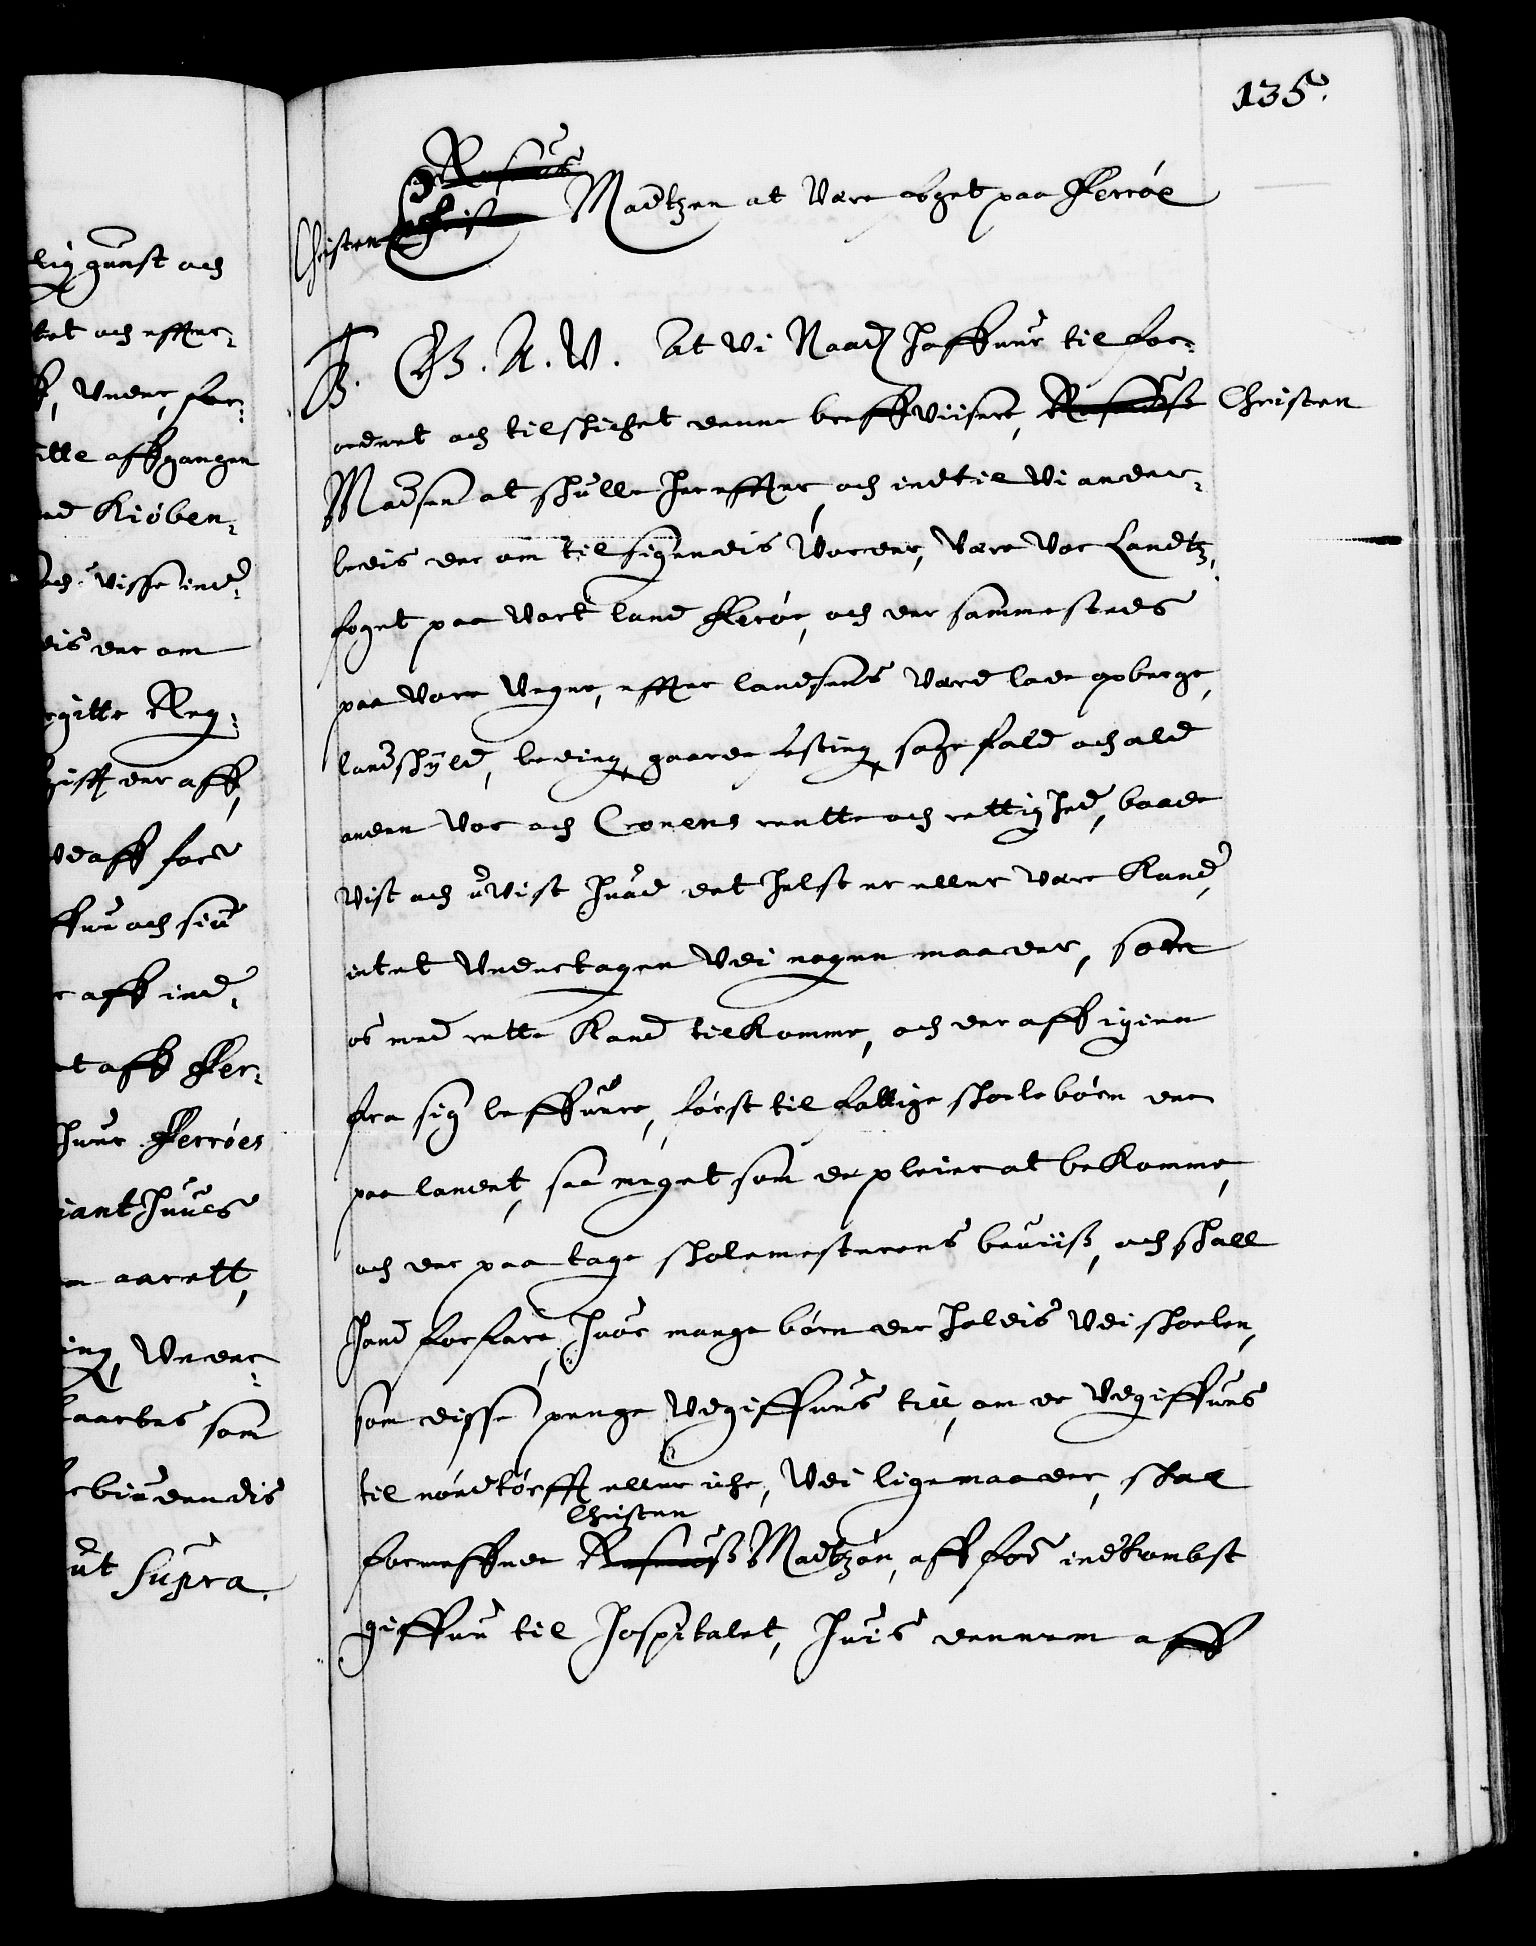 135.
lig gunst och
tet och efftter¬
Under, for¬
ille affgangen
nd Kiøben¬
och visse ind¬
eis der om
egitte Reg¬
gifft der aff,
ffuer och siu
aff ind¬
et aff Fer¬
Ferrøes
aarett,
ing, Under¬
som
ut supra.
Rasmus
Christen Christ Madtzen at være foget paa Ferrøe
C4. G. A. V. At Vi Naadt haffuer til for¬
ordnet och tilskicket denne breffviisere, Rasmus Christen
Madsen at skulle her effter, och indtil Vi ander¬
ledis der om tilsigendis Vorder, være Vor Landtz¬
foget paa Vort land Ferøe, och der sammesteds
paa Vore Vegne, effter landsens Værd lade opberge,
landskyld, leding, gaarde festing, sagefald och ald
anden Vor och Cronens rentte och rettighed, baade
vist och uvist huad det helst er eller være Kand,
intet Undertagen Udi nogen maader, som
os med rette Kand tilkomme, och der aff igien
fra sig leffuere, først til fattige skolebørn der
paa landet, saa meget som de pleier at bekomme,
och der paa tage skolemesterens beviiss, och skall
hand forfare, huor mange børn der holdis Udi skolen,
som disse penge Udgiffues till, om de Udgiffues
til nødtørfft eller icke, Udi lige maader, skal
Christen
forneffnde Rasmuss Madtzøn, aff for indkombst
giffue til Hospitalet, huis dennem aff